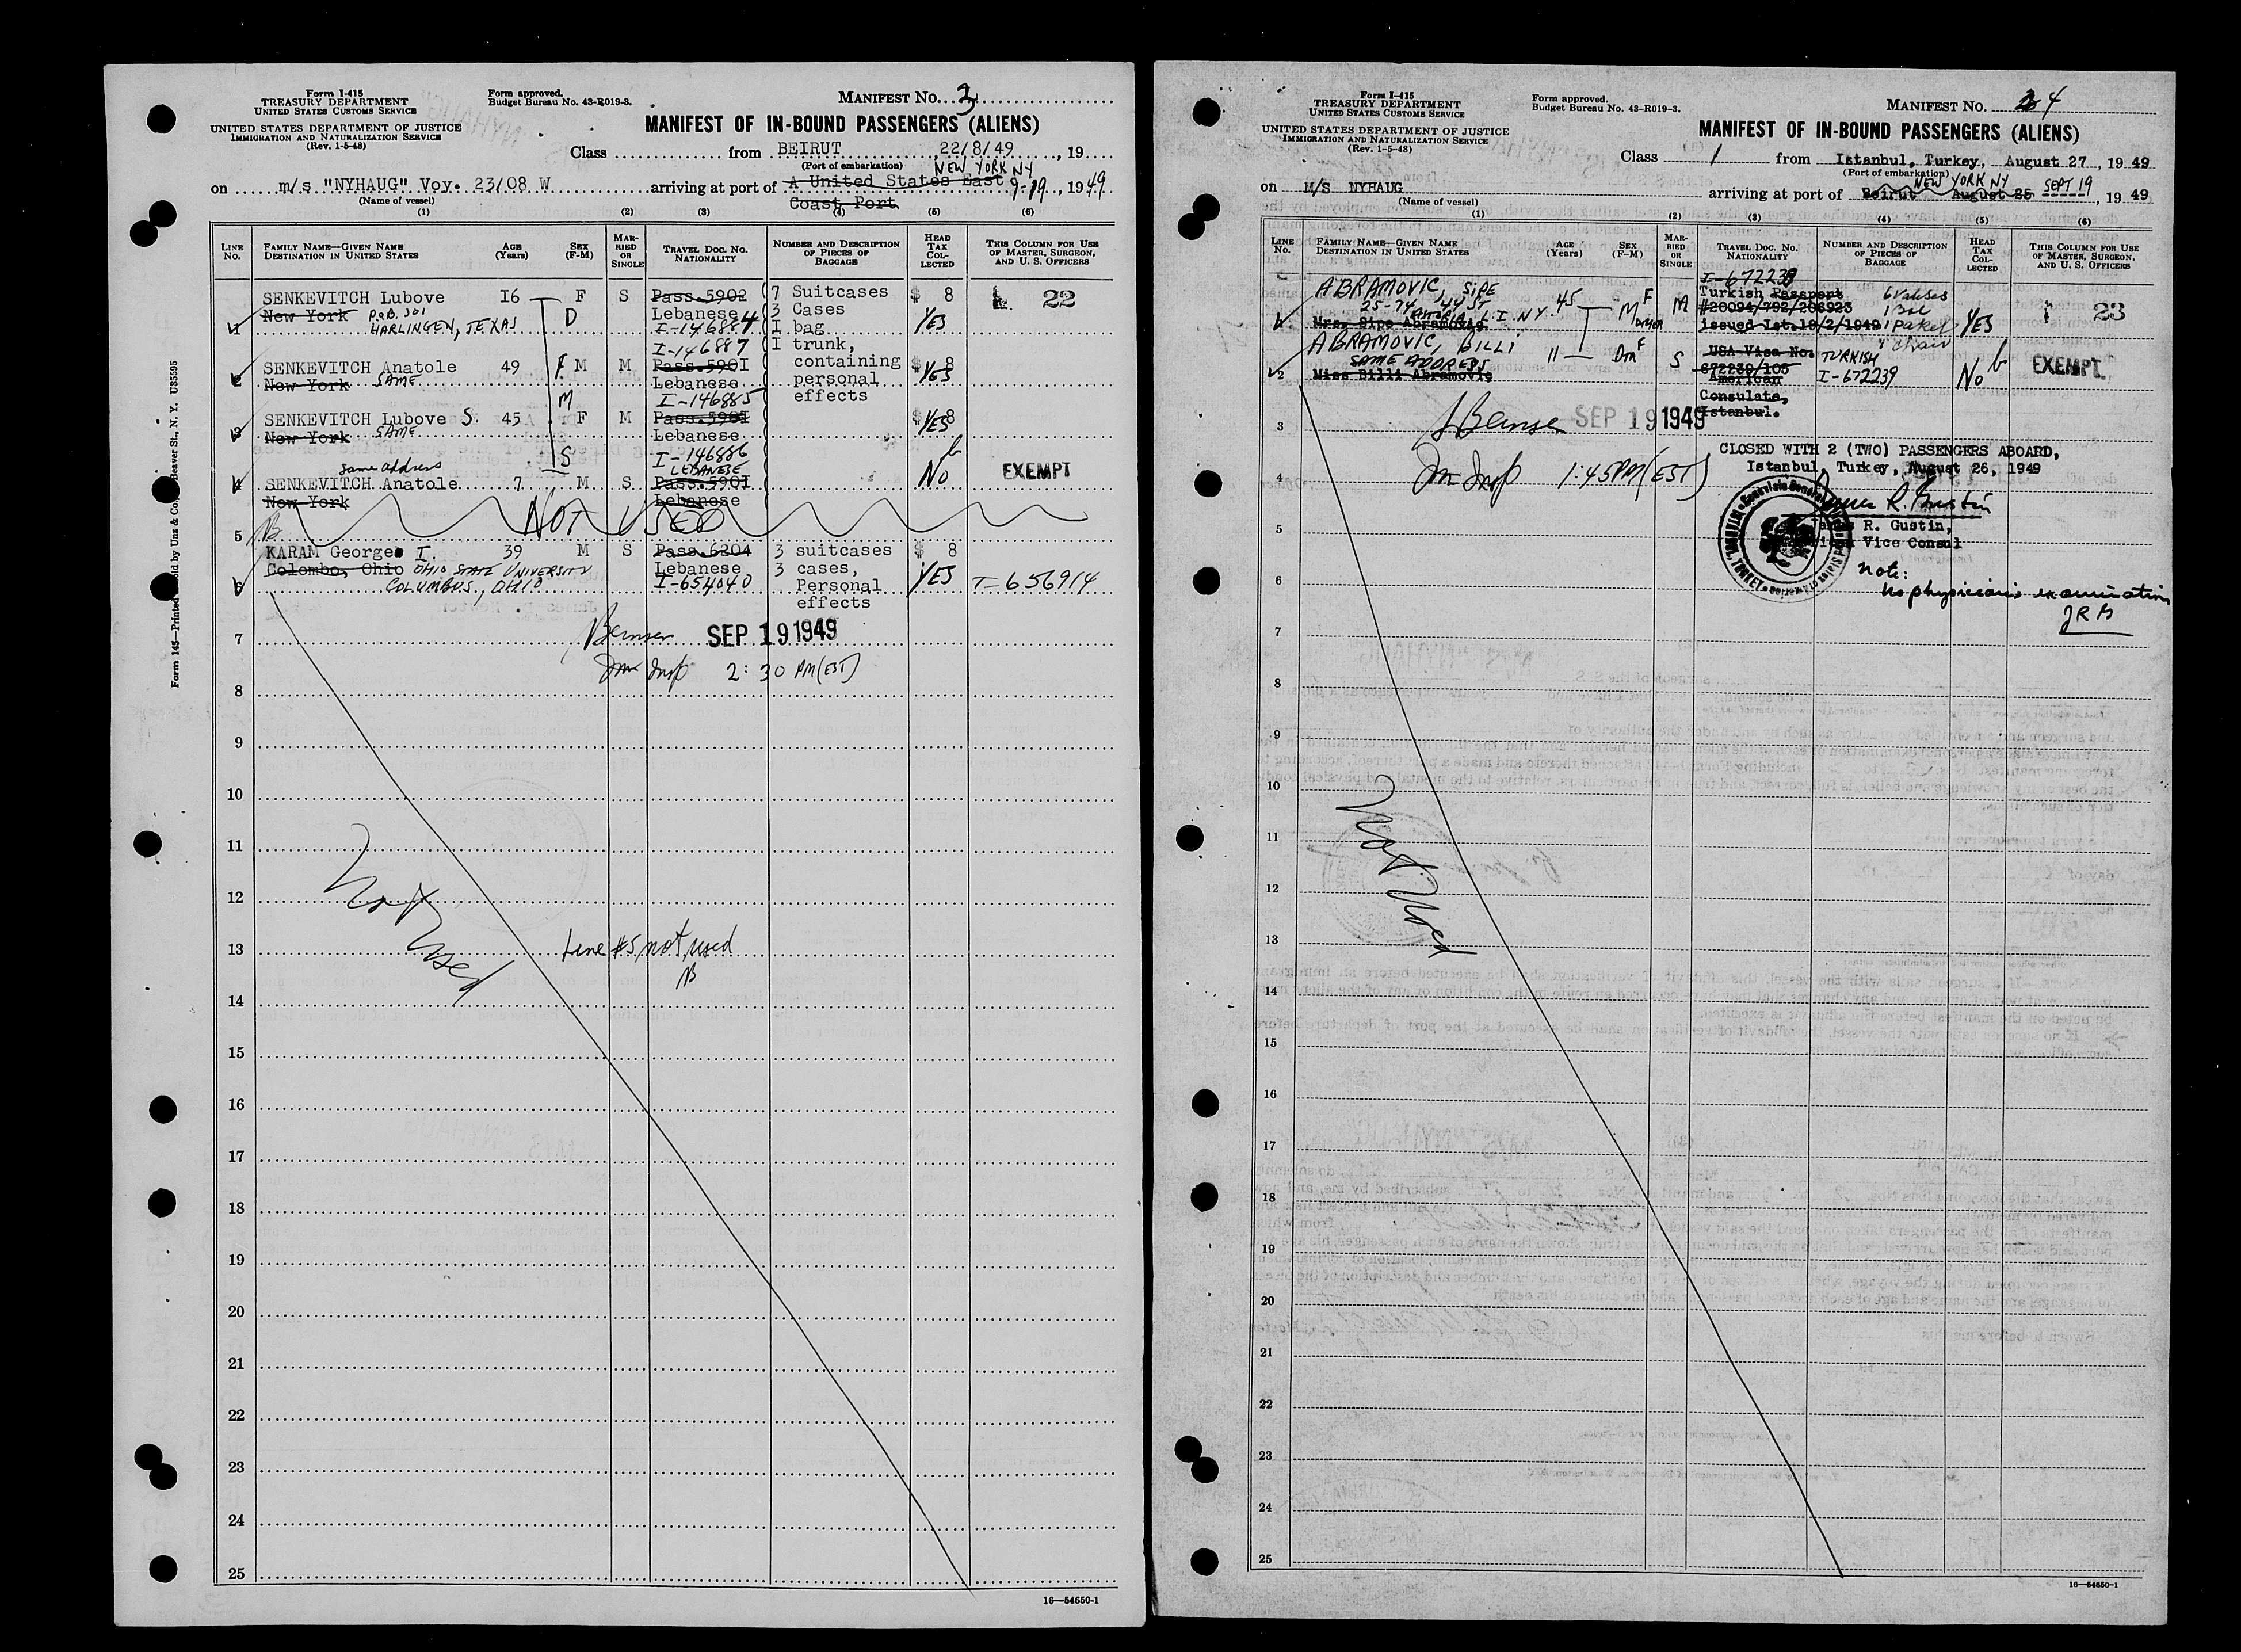 Form I-415
TREASURY DEPARTMENT
UNITED STATES CUSTOMS SERVICE
UNITED STATES DEPARTMENT OF JUSTICE
IMMIGRATION AND NATURALIZATION SERVICE
(Rev. 1-5-48)
Form approved.
Budget Bureau No. 43-R019-3.
MANIFEST No. 3
MANIFEST OF IN-BOUND PASSENGERS (ALIENS)
Class from BEIRUT, 22/8/49, 19
(Port of embarkation)
NEW YORK NY
on m/s "NYHAUG" Voy. 23/08 W arriving at port of A United States East 9-19, 1949
Coast Port
(Name of vessel)
(1) (2) (3) (4) (5) (6)
LINE No.
FAMILY NAME—GIVEN NAME
DESTINATION IN UNITED STATES
AGE (Years)
SEX (F-M)
MARRIED OR SINGLE
TRAVEL DOC. NO.
NATIONALITY
NUMBER AND DESCRIPTION OF PIECES OF BAGGAGE
HEAD TAX COLLECTED
THIS COLUMN FOR USE OF MASTER, SURGEON, AND U. S. OFFICERS
1 SENKEVITCH Lubove 16 F S Pass.5902 7 Suitcases $ 8 22
New York P.O.B. 301 D Lebanese 3 Cases
HARLINGEN, TEXAS I-146884 1 bag YES
I-146887 I trunk,
2 SENKEVITCH Anatole 49 F M M Pass.590I containing $ 8
New York SAME Lebanese personal YES
M I-146885 effects
3 SENKEVITCH Lubove S. 45 F M Pass.590I $ 8
New York SAME Lebanese YES
I-146886
same address S LEBANESE
4 SENKEVITCH Anatole 7 M S Pass.590I No EXEMPT
New York Lebanese
5 NOT USED
KARAM George I. 39 M S Pass.6204 3 suitcases $ 8
Colombo, Ohio OHIO STATE UNIVERSITY Lebanese 3 cases,
6 COLUMBUS, OHIO I-654040 Personal YES T-656914
effects
7 SEP 19 1949
Imm Insp 2:30 PM (EST)
8
9
10
11
12
Not Used
13 Line #5 not used
14
15
16
17
18
19
20
21
22
23
24
25
16—54650-1
Form 145—Printed Sold by Unz & Co. Beaver St., N. Y. U35595
Form I-415
TREASURY DEPARTMENT
UNITED STATES CUSTOMS SERVICE
UNITED STATES DEPARTMENT OF JUSTICE
IMMIGRATION AND NATURALIZATION SERVICE
(Rev. 1-5-48)
Form approved.
Budget Bureau No. 43-R019-3.
MANIFEST No. 4
MANIFEST OF IN-BOUND PASSENGERS (ALIENS)
Class 1 from Istanbul, Turkey, August 27, 1949
(Port of embarkation)
NEW YORK NY
on M/S NYHAUG arriving at port of Beirut August 25 SEPT 19 1949
(Name of vessel)
(1) (2) (3) (4) (5) (6)
LINE No.
FAMILY NAME—GIVEN NAME
DESTINATION IN UNITED STATES
AGE (Years)
SEX (F-M)
MARRIED OR SINGLE
TRAVEL DOC. NO.
NATIONALITY
NUMBER AND DESCRIPTION OF PIECES OF BAGGAGE
HEAD TAX COLLECTED
THIS COLUMN FOR USE OF MASTER, SURGEON, AND U. S. OFFICERS
I-672238
ABRAMOVIC, SIPE Turkish Passport 6 Valises
25-74, 44 ST 45 M F M #20094/792/206923 1 Box 23
1 Mrs. Sipe Abramovic ASTORIA L.I. N.Y. issued Ist.18/2/1949 1 paket YES
ABRAMOVIC, BILLI 11 F S USA Visa No. TURKISH 1 chair
SAME ADDRESS 672239/105 I-672239 No EXEMPT
2 Miss Billi Abramovic American
Consulate,
Istanbul.
3 SEP 19 1949
CLOSED WITH 2 (TWO) PASSENGERS ABOARD,
4 Imm Insp 1:45 PM (EST) Istanbul, Turkey, August 26, 1949
5 James R. Gustin,
Vice Consul
6 Note:
No physician's examination
JRG
7
8
9
10
11
Not Used
12
13
14
15
16
17
18
19
20
21
22
23
24
25
16—54650-1